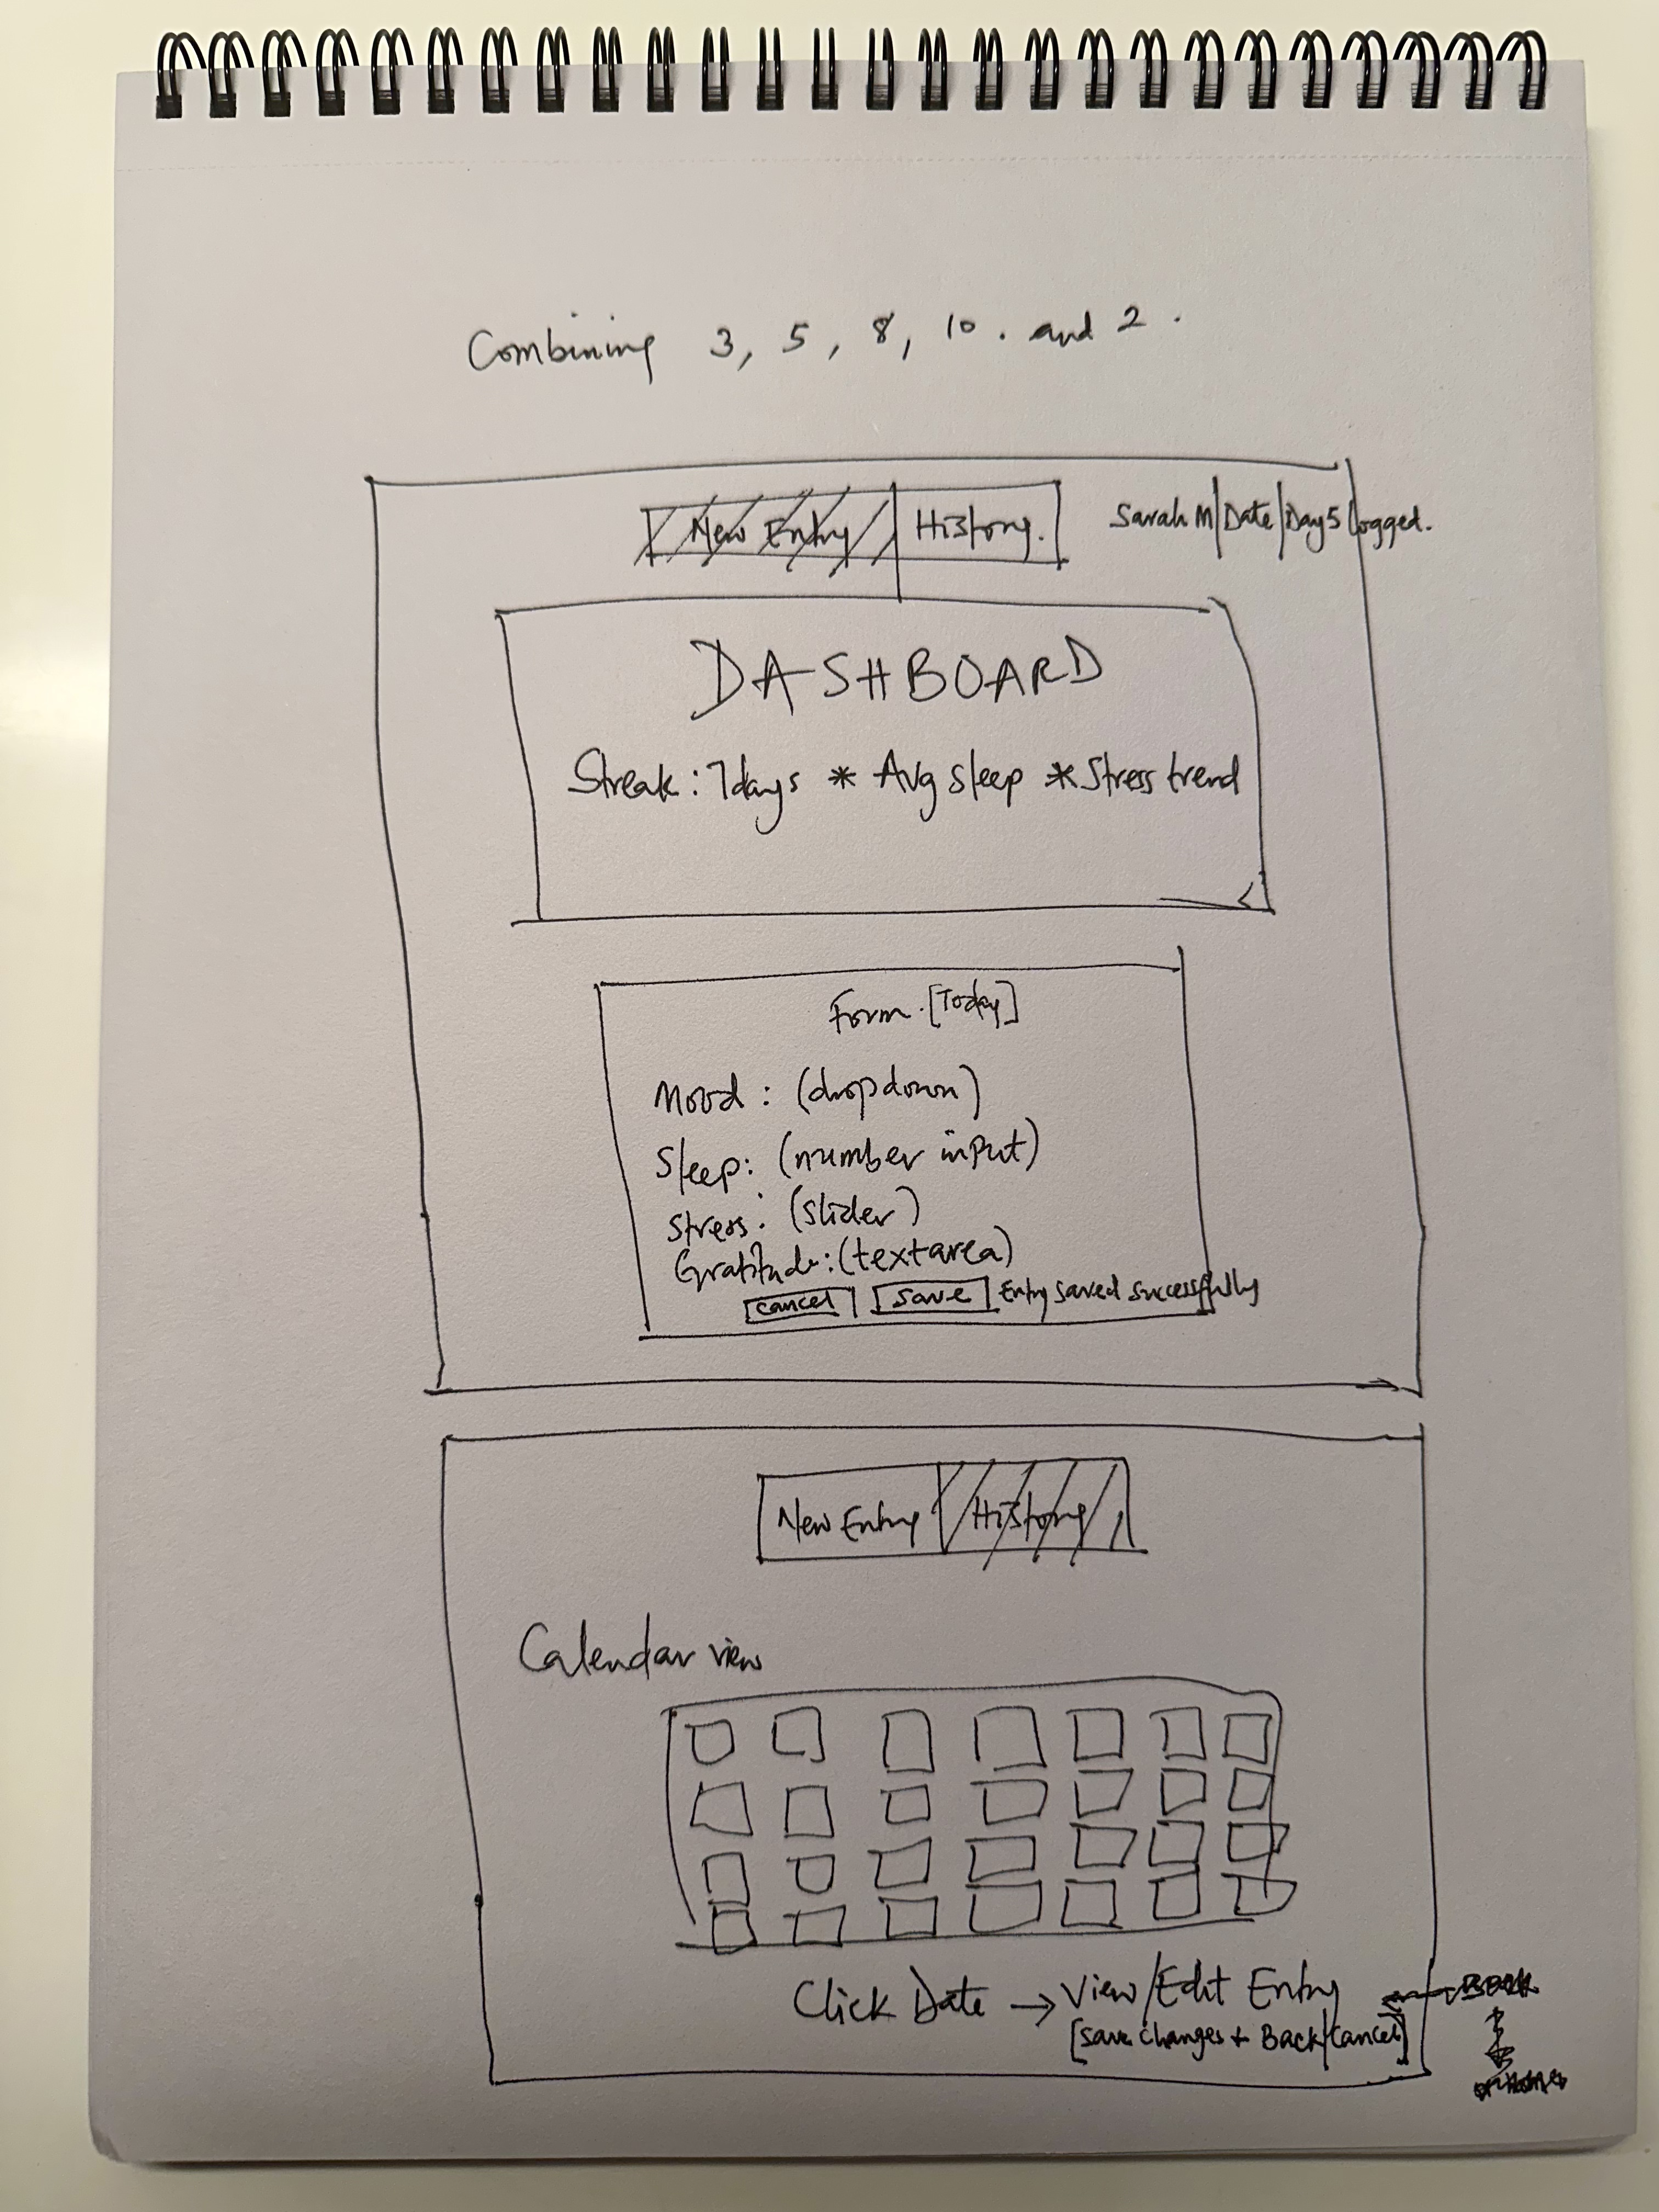 Combining 3, 5, 8, 10. and 2.
New Entry History. Sarah M|Date|Day5 logged.
DASHBOARD
Streak: 7days * Avg sleep * Stress trend
Form. [Today]
Mood: (dropdown)
Sleep: (number input)
Stress: (slider)
Gratitude: (textarea)
Cancel Save Entry saved successfully
New Entry History
Calendar view
Click Date → View/Edit Entry
[Save Changes + Back/Cancel]